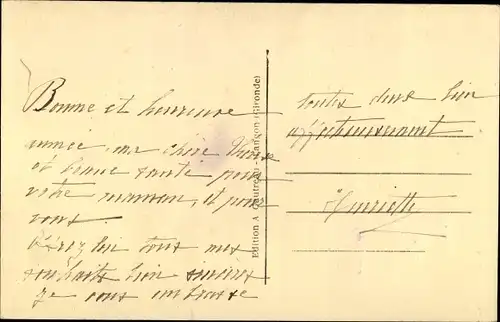 Bonne et heureuse
annee ma chère
et bonne santé pour
votre maman, et pour
vous.
tous mes
souhaits bien sincères
je vous embrasse
toutes deux bien
affectueusement
Henriette
Edition A. Gautreau Langon (Gironde)